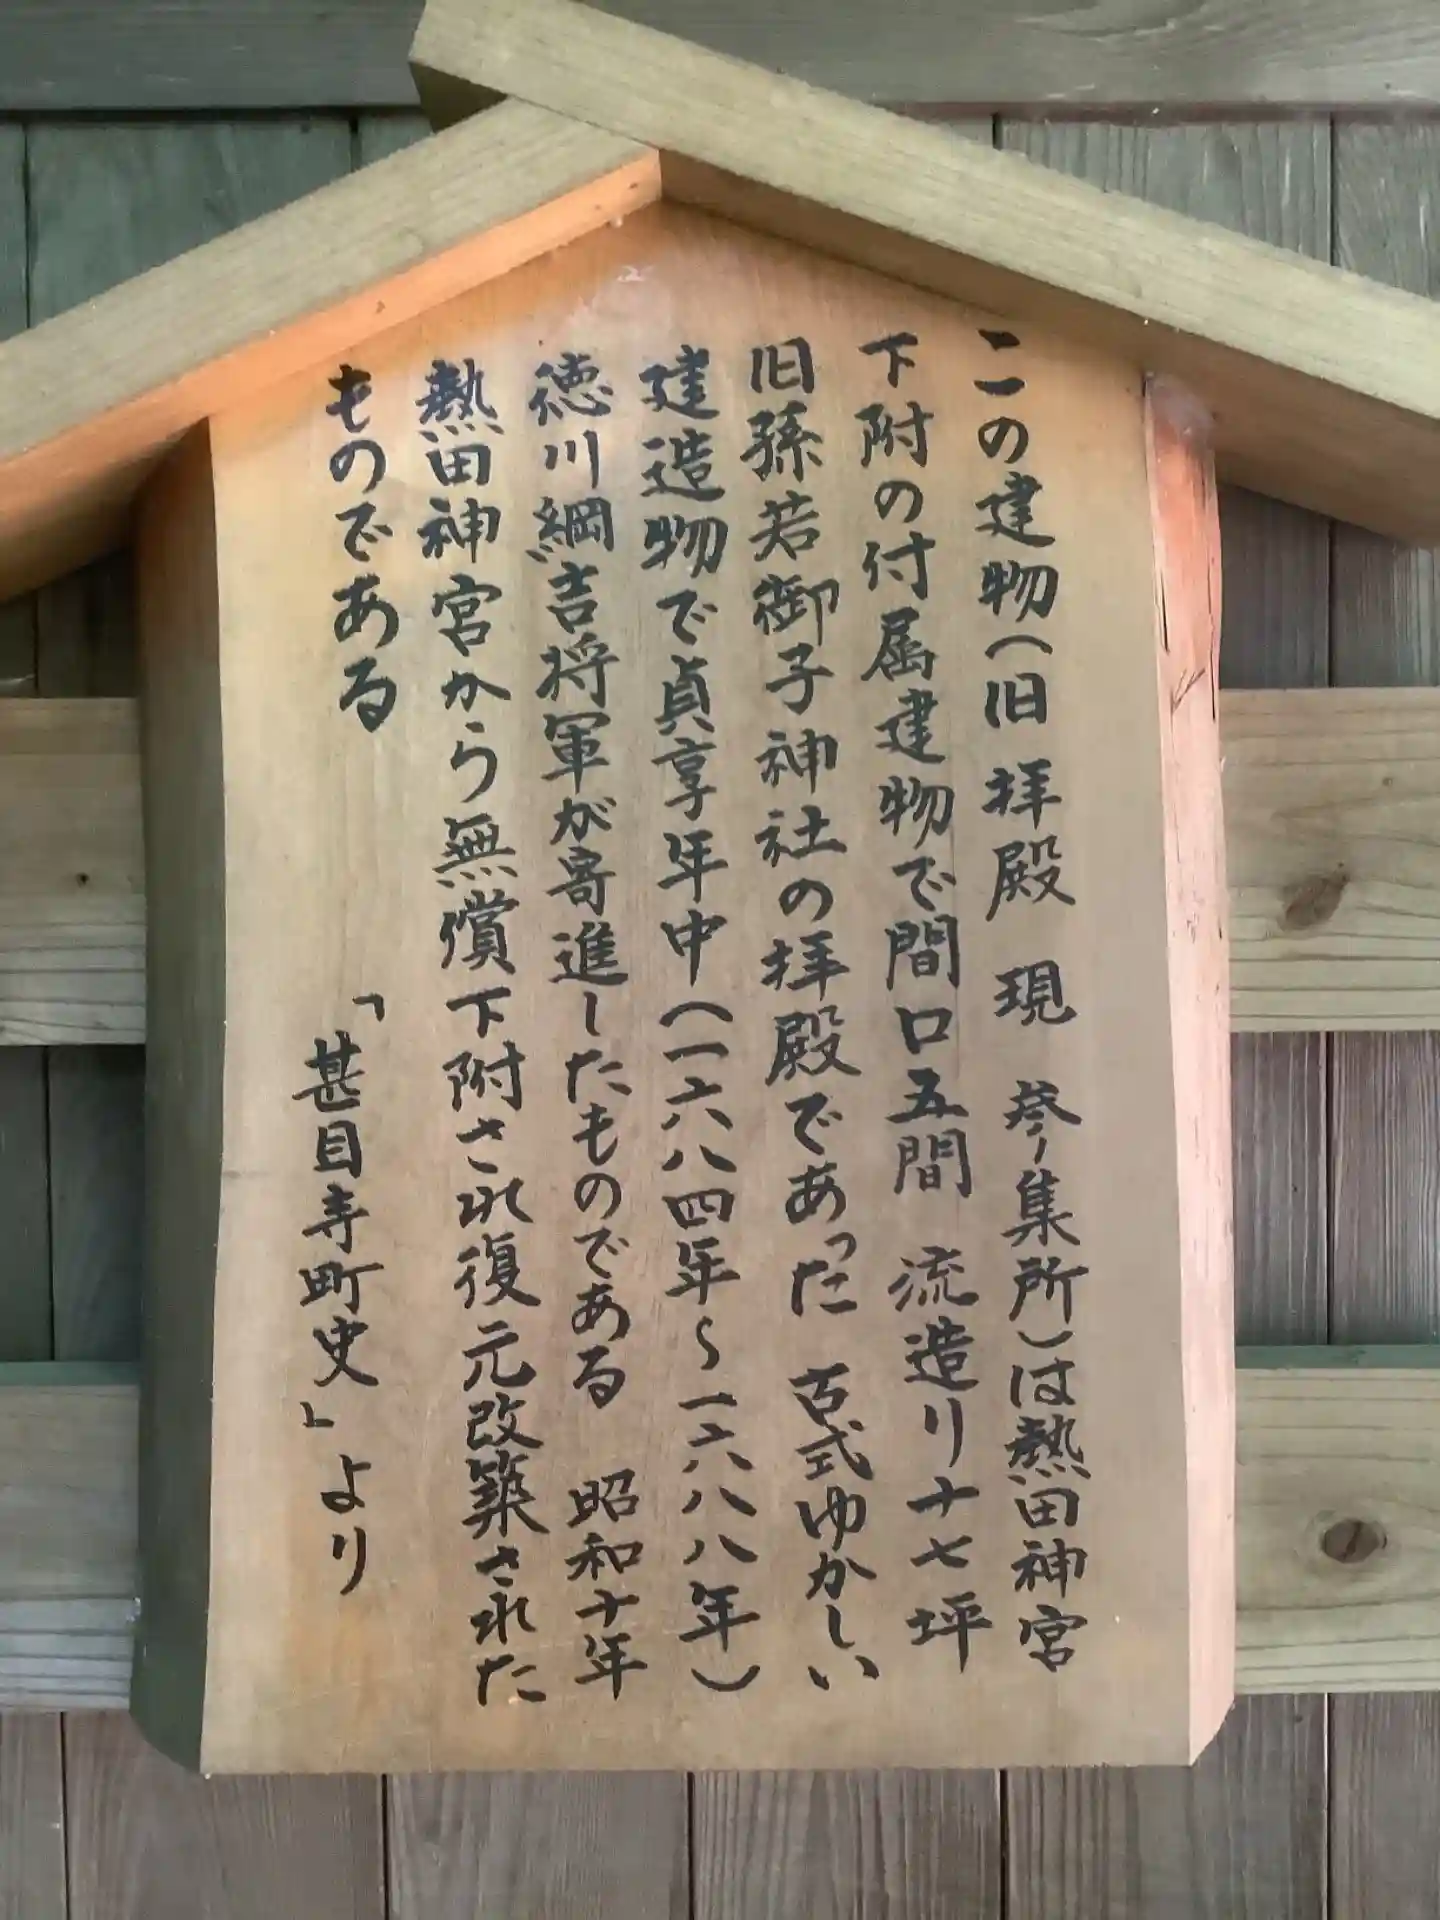 この建物(旧拝殿 現 参集所)は熱田神宮
下附の付属建物で間口五間 流造り十七坪
旧孫若御子神社の拝殿であった 古式ゆかしい
建造物で貞享年中(一六八四年～一六八八年)
徳川綱吉将軍が寄進したものである 昭和十年
熱田神宮から無償下附され復元改築された
ものである
「甚目寺町史」より